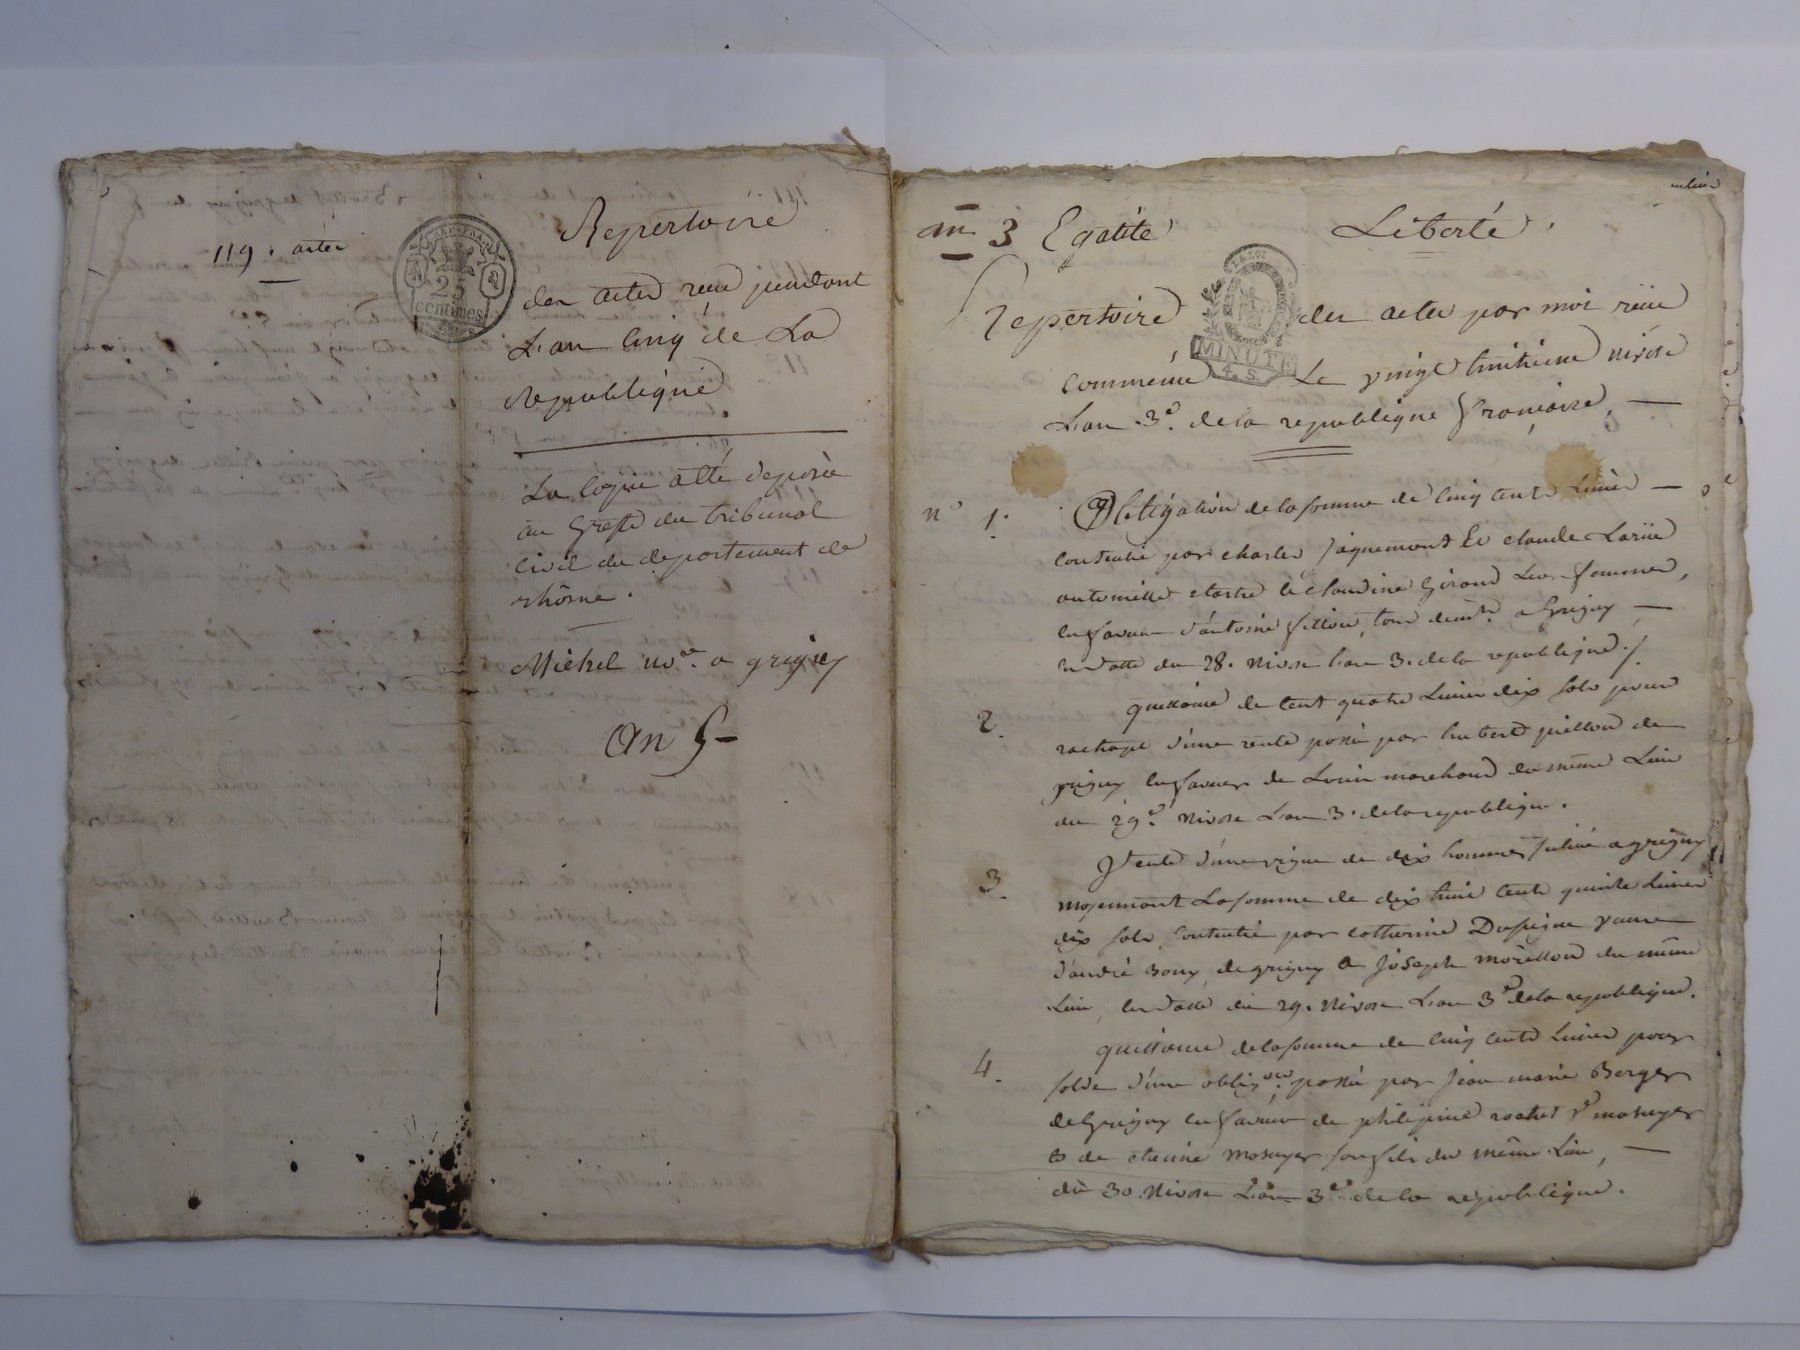 119. actes
25
centimes
Repertoire
des actes reçu pendant
L'an cinq de La
republique
La copie a été deposée
au Greffe du tribunal
civil du departement du
rhône.
Michel no.re a grigny
an 5
an 3 Egalité Liberté
Repertoire des actes par moi reçu
MINUTE
4. S.
commencé Le vingt huitieme nivose
L'an 3.e de la republique françaisse,
n° 1. Obligation de la somme de cinq cents Livres
contractée par charles jaquemont Et claude Larüe
antoinette et claudine Giraud Leur femmes,
en faveur d'antoine fillon, tous dem.ts a Grigny
en datte du 28. Nivose l'an 3. de la republique./.
2. quittance de cent quatre Livres dix sols pour
rachapt d'une rente passée par hubert de
grigny en faveur de Louis marchand du même Lieu
du 29.e Nivose L'an 3. de la republique.
3. Vente d'une vigne de dix hommes située a grigny
moyennant La somme de dix huit cents quinze Livres
dix sols, contractée par catherine veuve
d'andré Bouy de grigny a joseph morellon du même
Lieu, en datte du 29. Nivose L'an 3.e de la republique.
4. quittance de la somme de cinq cents Livres pour
solde d'une oblig.on passée par jean marie Berger
de Grigny en faveur de philipine rochet v.e mosnyer
et de etienne mosnyer son fils du même Lieu,
du 30. Nivose L'an 3.e de la republique.